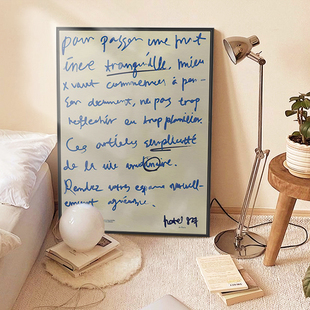 pour passer une nuit
ince tranquille. mieu
x vaut commencer à pen-
ser document, ne pas trop
reflechir ou trop planifier.
Ces articles simplicité
de la vie
Rendez votre espace naturell-
ement agréable.
hotel 827